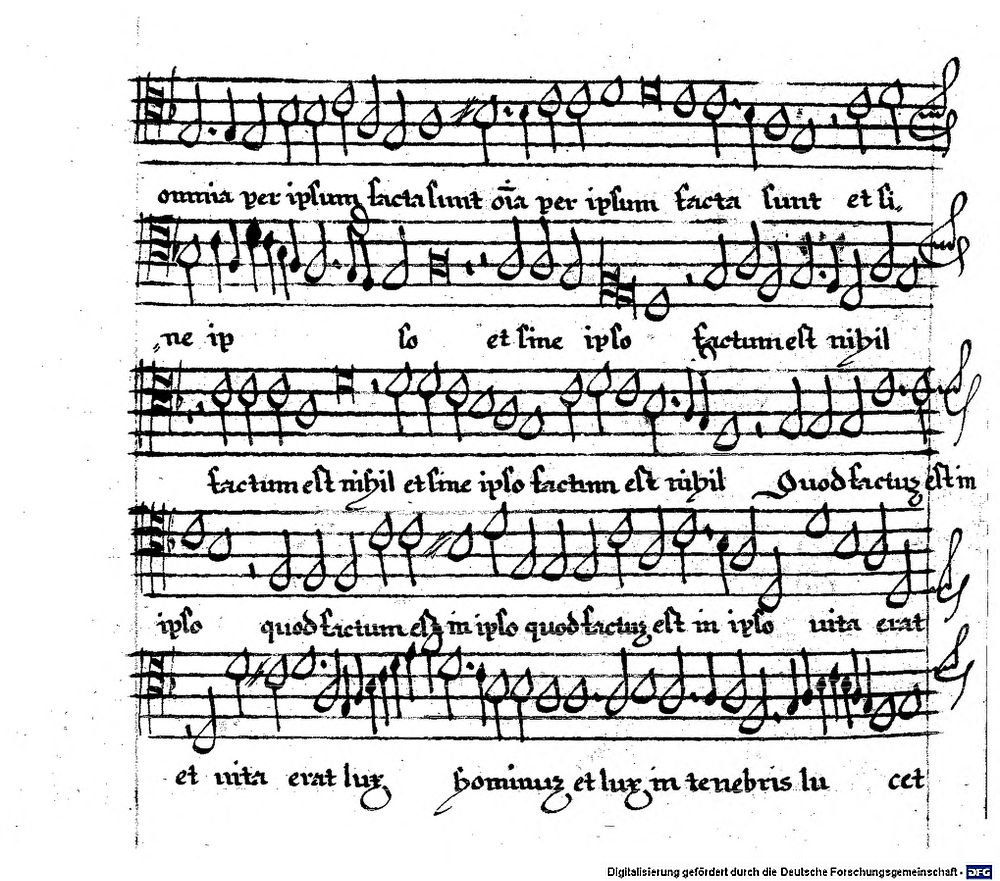 omnia per ipsum facta sunt oĩa per ipsum facta sunt et si,
ne ip so et sine ipso factum est nihil
factum est nihil et sine ipso factum est nihil Quod factuȝ est in
ipso quod factum est in ipso quod factuȝ est in ipso uita erat
et uita erat lux hominuȝ et lux in tenebris lu cet
Digitalisierung gefördert durch die Deutsche Forschungsgemeinschaft - DFG